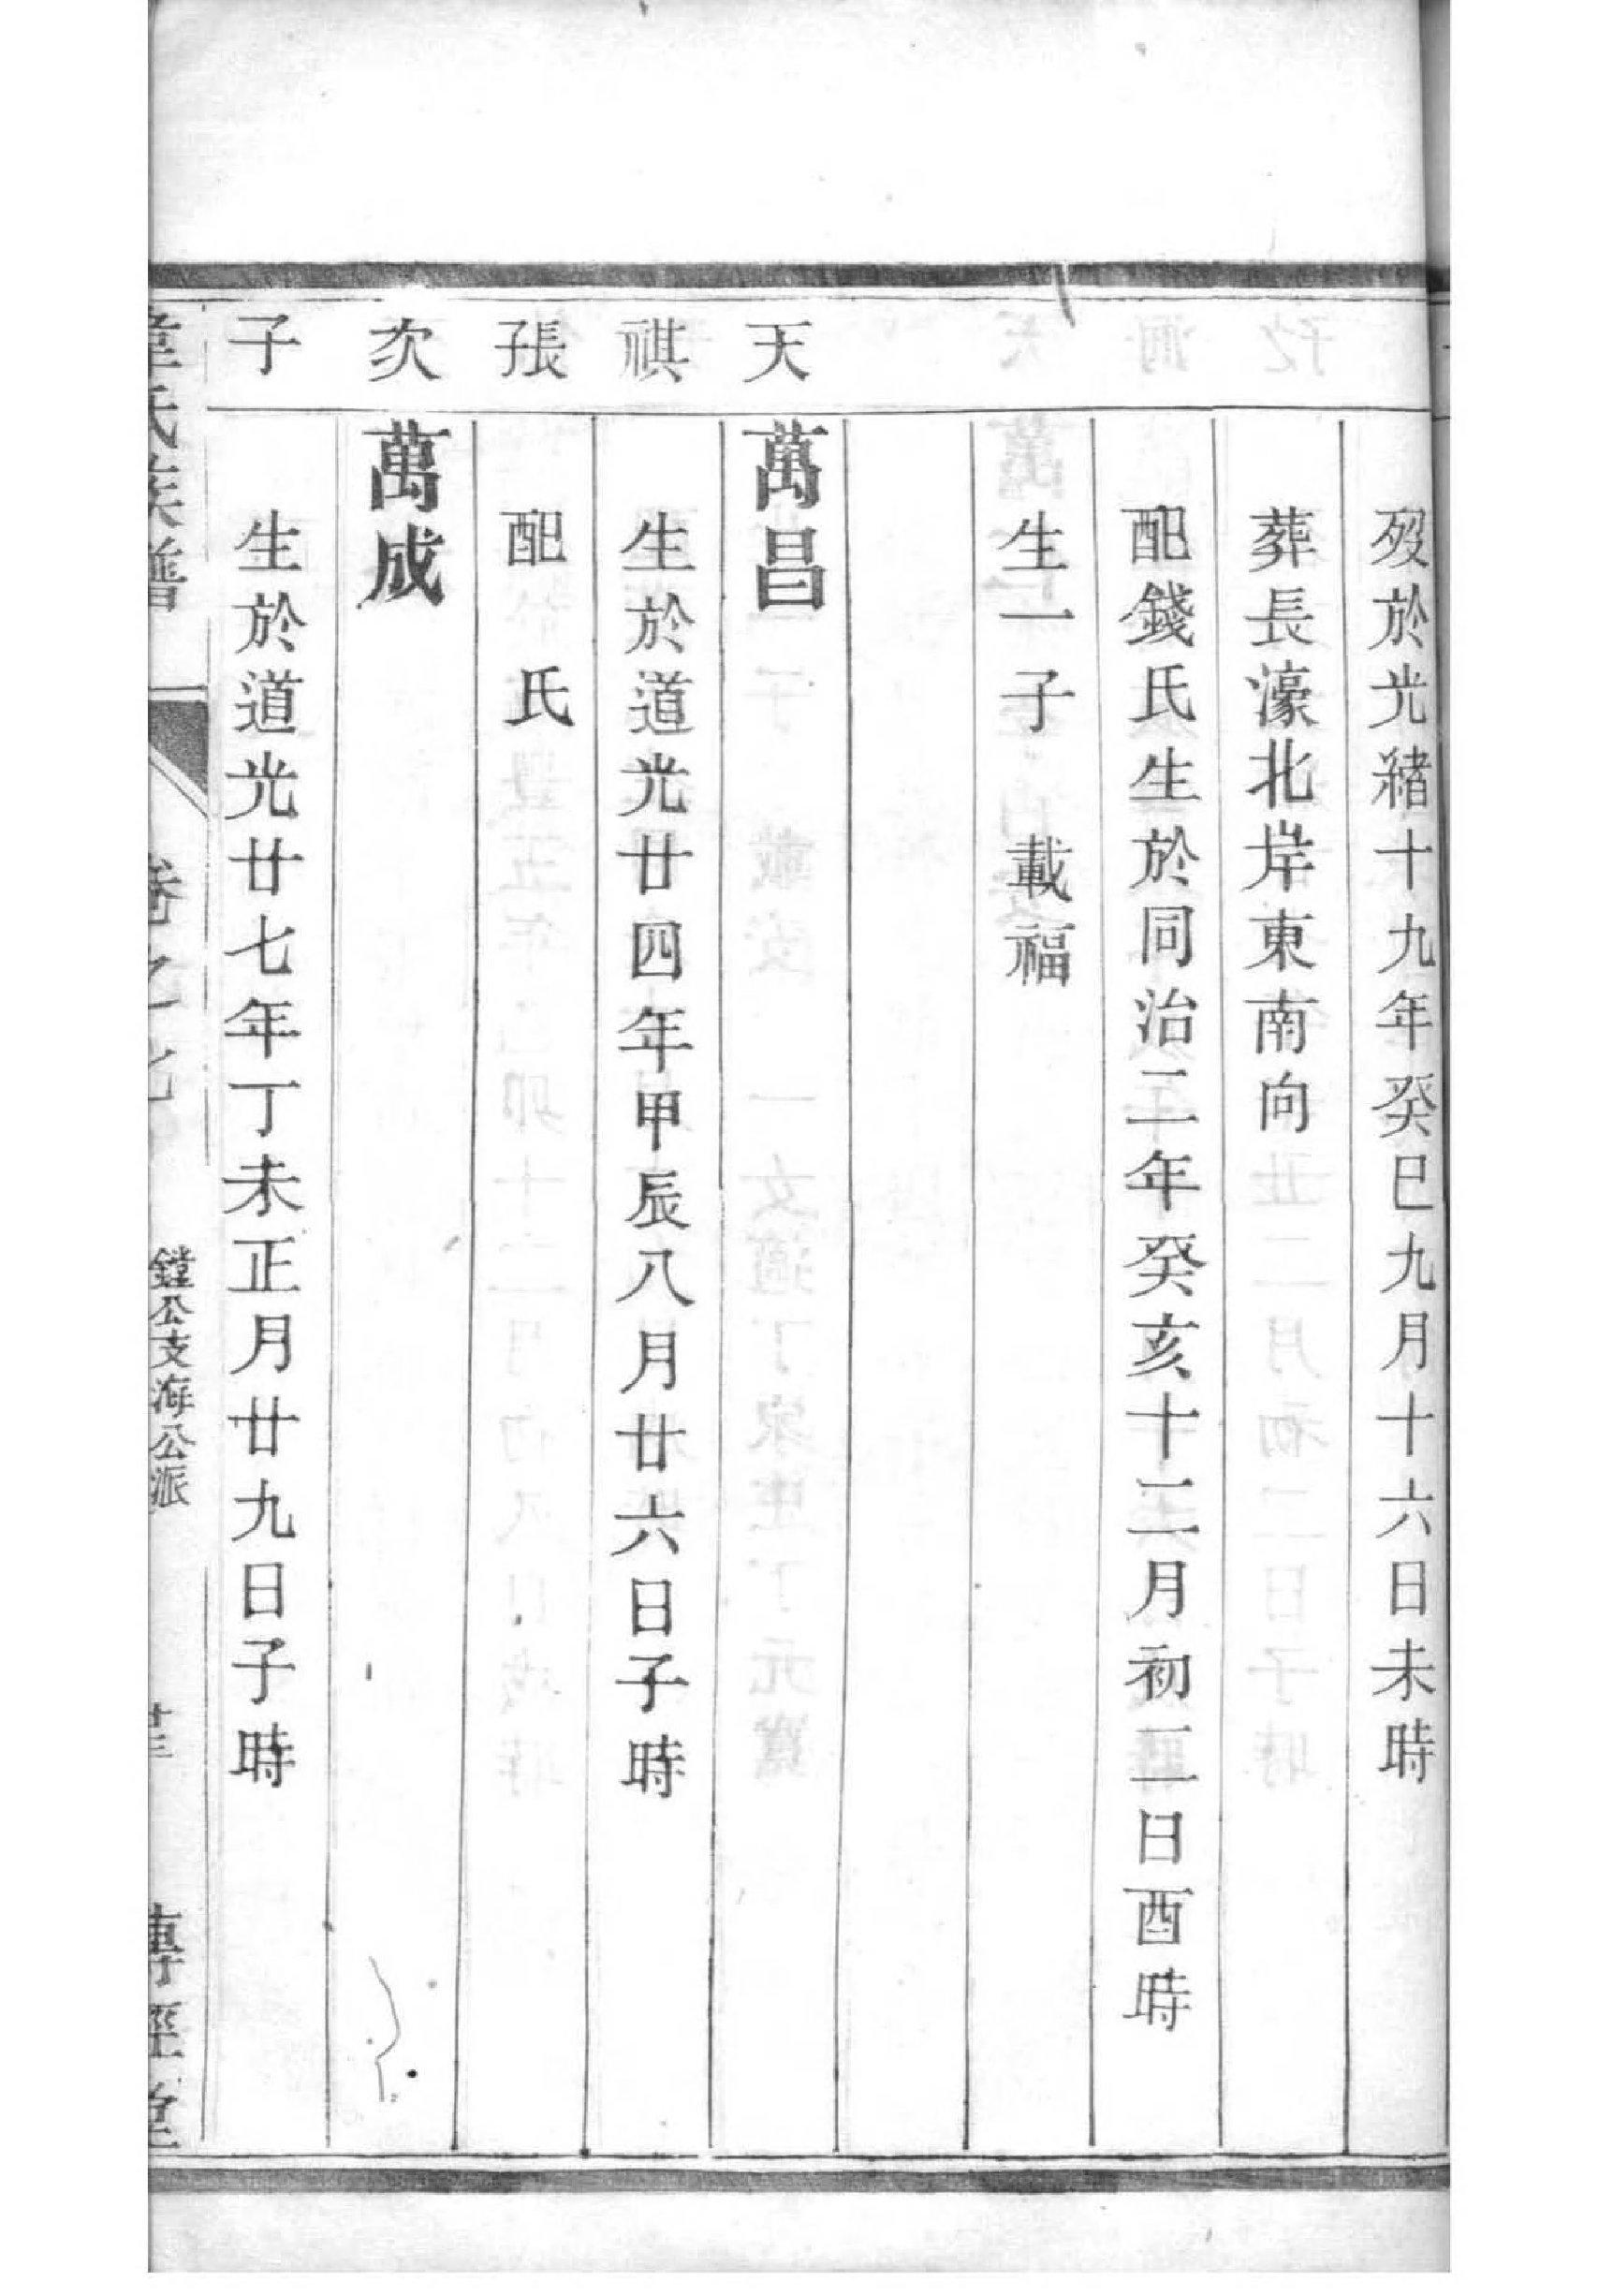 歿於光緒十九年癸巳九月十六日未時
葬長濠北岸東南向
配錢氏生於同治二年癸亥十二月初二日酉時
生一子 載福
天 萬昌
祺 生於道光廿四年甲辰八月廿六日子時
張子 配 氏
次 萬成
子 生於道光廿七年丁未正月廿九日子時
韋氏族譜 卷之 鏜公支海公派 傳經堂